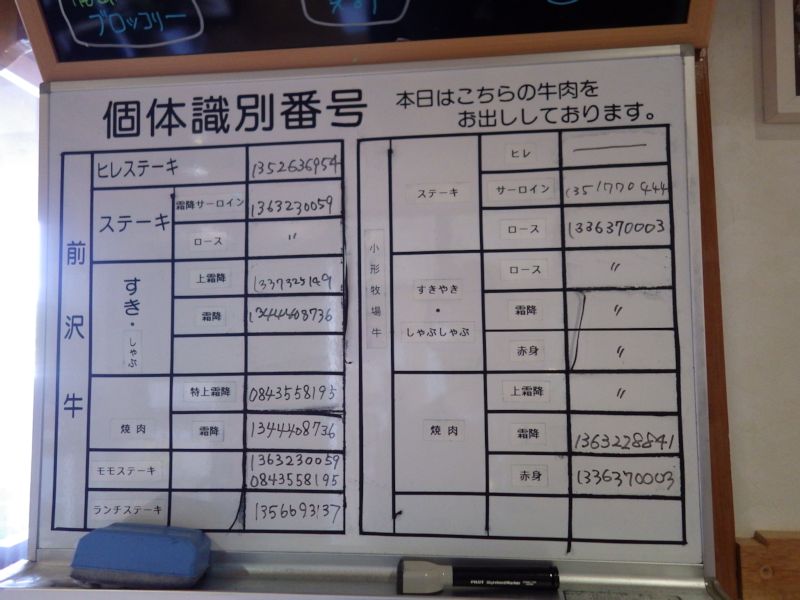 ブロッコリー
個体識別番号
本日はこちらの牛肉を
お出ししております。
前沢牛
ヒレステーキ 1352636954
ステーキ 霜降サーロイン 1363230059
ロース 〃
すき・しゃぶ 上霜降 1337325149
霜降 1344408736
焼肉 特上霜降 0843558195
霜降 1344408736
モモステーキ 1363230059
0843558195
ランチステーキ 1356693137
小形牧場牛
ステーキ ヒレ ―
サーロイン 1351770444
ロース 1336370003
すきやき・しゃぶしゃぶ ロース 〃
霜降 〃
赤身 〃
焼肉 上霜降 〃
霜降 1363228841
赤身 1336370003
PILOT